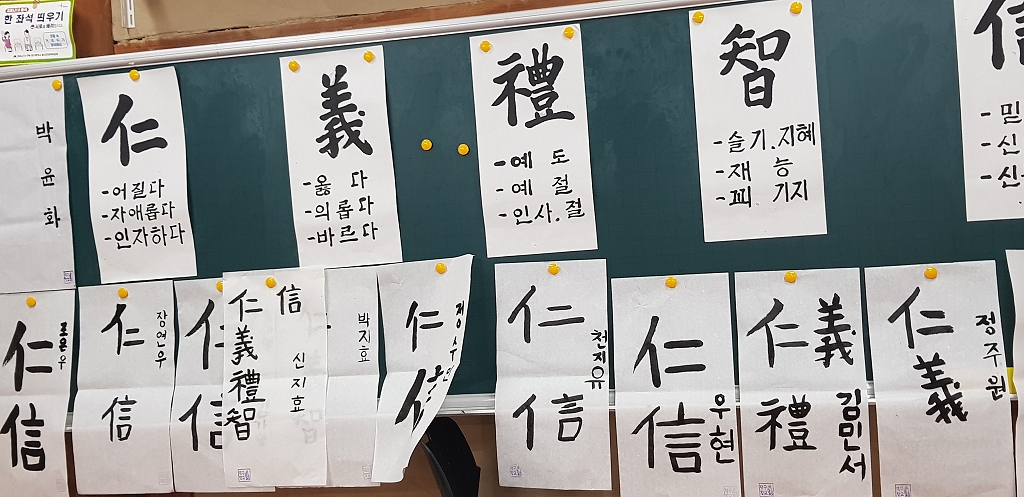 한 좌석 띄우기
박윤화
仁
-어질다
-자애롭다
-인자하다
義
-옳다
-의롭다
-바르다
禮
-예도
-예절
-인사.절
智
-슬기.지혜
-재능
-꾀 기지
信
-믿
-신
-신
仁
信
仁
信
장연우
仁
信
仁義禮智
信
신지효
박지효
仁
信
정수인
仁
信
천지유
仁
信
우현
仁義
禮
김민서
仁
義
정주원